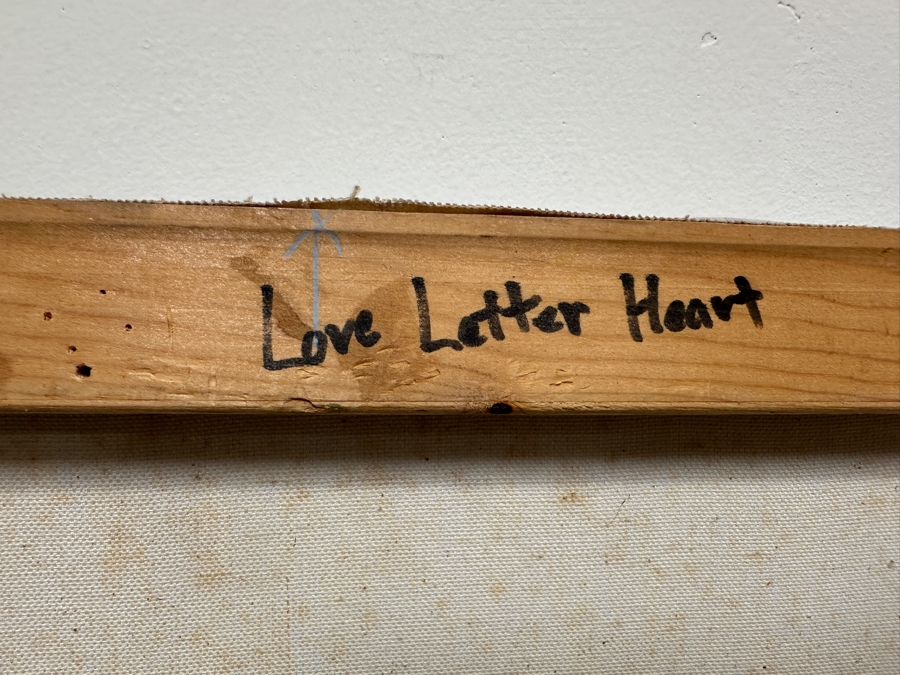 Love Letter Heart